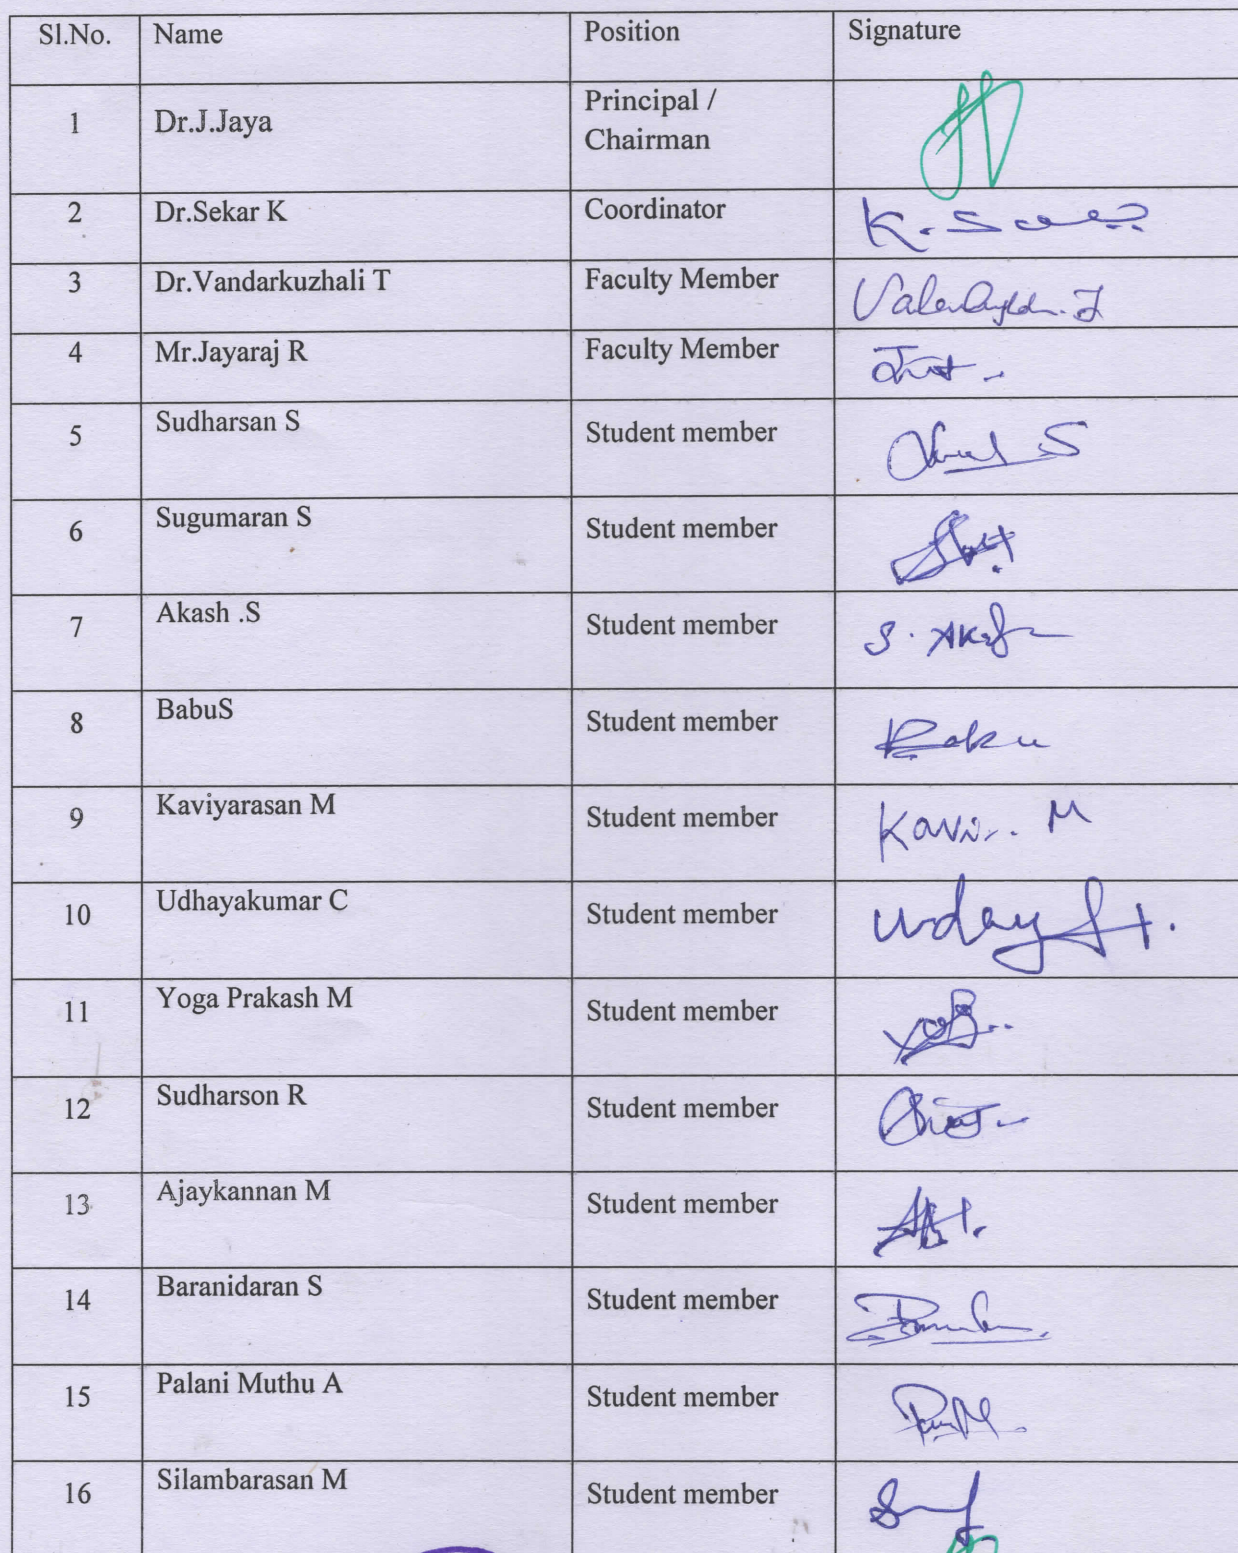 Sl.No. Name Position Signature
1 Dr.J.Jaya Principal /
Chairman
2 Dr.Sekar K Coordinator K.
3 Dr.Vandarkuzhali T Faculty Member
4 Mr.Jayaraj R Faculty Member
5 Sudharsan S Student member S
6 Sugumaran S Student member
7 Akash .S Student member S. Akash
8 BabuS Student member Babu
9 Kaviyarasan M Student member Kavi.. M
10 Udhayakumar C Student member uday
11 Yoga Prakash M Student member
12 Sudharson R Student member
13 Ajaykannan M Student member
14 Baranidaran S Student member
15 Palani Muthu A Student member
16 Silambarasan M Student member